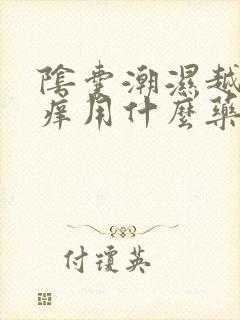 陰囊潮濕越
痒用什麼藥
付瓊英